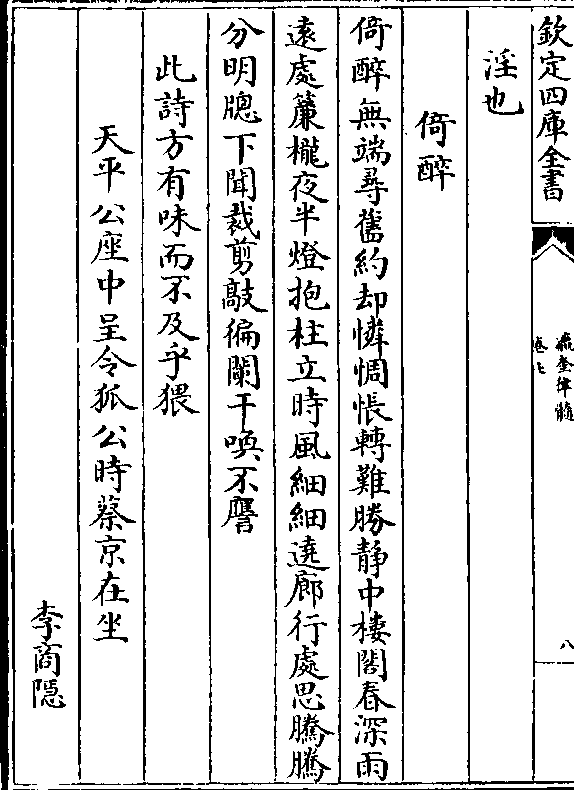 欽定四庫全書
瀛奎律髓
卷七
八
淫也
倚醉
倚醉無端尋舊約却憐惆悵轉難勝靜中樓閣春深雨
遠處簾櫳夜半燈抱柱立時風細細遶廊行處思騰騰
分明牕下聞裁剪敲徧闌干喚不譍
此詩方有味而不及乎猥
天平公座中呈令狐公時蔡京在坐
李商隱